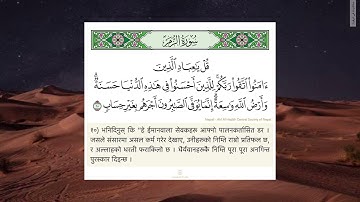 سُورَةُ الزُّمَرِ
قُلْ يَٰعِبَادِ ٱلَّذِينَ
ءَامَنُوا۟ ٱتَّقُوا۟ رَبَّكُمْ لِلَّذِينَ أَحْسَنُوا۟ فِى هَٰذِهِ ٱلدُّنْيَا حَسَنَةٌ
وَأَرْضُ ٱللَّهِ وَٰسِعَةٌ إِنَّمَا يُوَفَّى ٱلصَّٰبِرُونَ أَجْرَهُم بِغَيْرِ حِسَابٍ ١٠
Nepali - Ahl Al-Hadith Central Society of Nepal
१०) भनिदिनुस् कि "हे ईमानवाला सेवकहरू आफ्नो पालनकर्तासित डर ।
जसले संसारमा असल कर्म गरेर देखाए, उनीहरूको निम्ति राम्रो प्रतिफल छ,
र अल्लाहको धरती फराकिलो छ । धैर्यवानहरूकै निम्ति पूरा पूरा अनगिन्त
पुरस्कार दिइन्छ ।